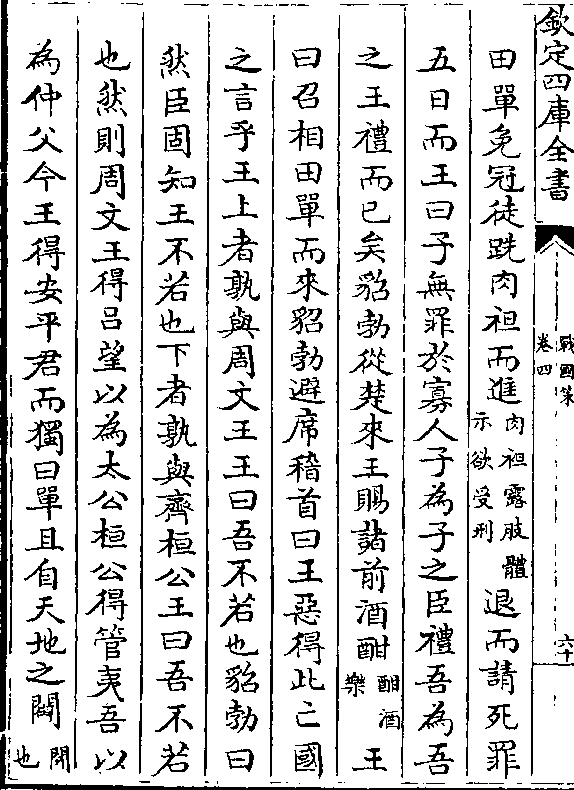 欽定四庫全書
戰國策
卷四
六十
田單免冠徒跣肉袒而進肉袒露肢體示欲受刑退而請死罪
五日而王曰子無罪於寡人子為子之臣禮吾為吾
之王禮而已矣貂勃從楚來王賜諸前酒酣酣酒樂王
曰召相田單而來貂勃避席稽首曰王惡得此亡國
之言乎王上者孰與周文王王曰吾不若也貂勃曰
然臣固知王不若也下者孰與齊桓公王曰吾不若
也然則周文王得呂望以為太公桓公得管夷吾以
為仲父今王得安平君而獨曰單且自天地之闢開也